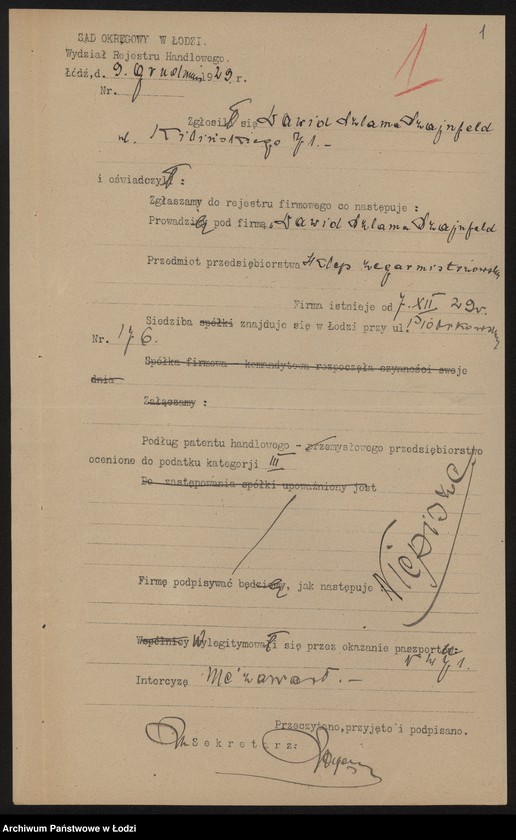 1
1
SĄD OKRĘGOWY W ŁODZI.
Wydział Rejestru Handlowego.
Łódź, d. 9. grudnia 1929 r.
Nr.
Zgłosił się Dawid Szlama Szajnfeld
ul. Kilińskiego 71. –
i oświadczył :
Zgłaszamy do rejestru firmowego co następuje :
Prowadzę pod firmą „Dawid Szlama Szajnfeld
Przedmiot przedsiębiorstwa Sklep zegarmistrzowski
Firma istnieje od 7. XII 29 r.
Siedziba spółki znajduje się w Łodzi przy ul. Piotrkowskiej
Nr. 176.
Spółka firmowa – komandytowa rozpoczęła czynności swoje
dnia
Załączamy :
Podług patentu handlowego – przemysłowego przedsiębiorstwo
ocenione do podatku kategorji III
Do zastępowania spółki upoważniony jest
Firmę podpisywać będę, jak następuje :
Niepiszę
Wspólnicy Wylegitymował się przez okazanie paszportu:
Intercyzę nie zawarł. –
Przeczytano, przyjęto i podpisano.
Sekretarz:
Archiwum Państwowe w Łodzi